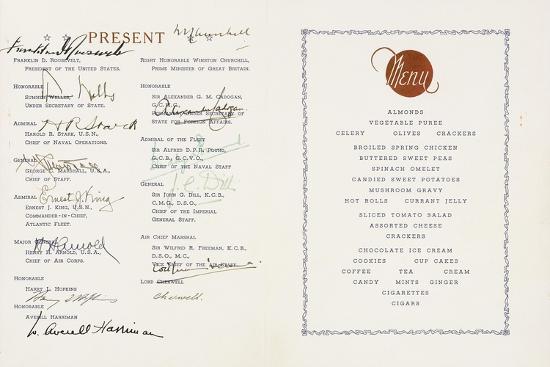 PRESENT
W S Churchill
Franklin D Roosevelt
FRANKLIN D. ROOSEVELT,
PRESIDENT OF THE UNITED STATES.
HONORABLE
SUMNER WELLES,
UNDER SECRETARY OF STATE.
ADMIRAL
H R Stark
HAROLD R. STARK, U.S.N.,
CHIEF OF NAVAL OPERATIONS.
GENERAL
GEORGE C. MARSHALL, U.S.A.,
CHIEF OF STAFF.
ADMIRAL
Ernest J. King
ERNEST J. KING, U.S.N.,
COMMANDER-IN-CHIEF,
ATLANTIC FLEET.
MAJOR GENERAL
H H Arnold
HENRY H. ARNOLD, U.S.A.,
CHIEF OF AIR CORPS.
HONORABLE
HARRY L. HOPKINS
Harry L Hopkins
HONORABLE
AVERELL HARRIMAN
W. Averell Harriman
RIGHT HONORABLE WINSTON CHURCHILL,
PRIME MINISTER OF GREAT BRITAIN.
HONORABLE
SIR ALEXANDER G. M. CADOGAN,
G.C.M.G.
Alexander Cadogan
SECRETARY OF
STATE FOR FOREIGN AFFAIRS.
ADMIRAL OF THE FLEET
SIR ALFRED D.P.R. POUND,
G.C.B., G.C.V.O.,
CHIEF OF THE NAVAL STAFF
GENERAL
J. G. Dill
SIR JOHN G. DILL, K.C.B.,
C.M.G., D.S.O.,
CHIEF OF THE IMPERIAL
GENERAL STAFF.
AIR CHIEF MARSHAL
SIR WILFRID R. FREEMAN, K.C.B.,
D.S.O., M.C.,
VICE CHIEF OF THE AIR STAFF.
LORD CHERWELL
Cherwell.
Menu
ALMONDS
VEGETABLE PUREE
CELERY OLIVES CRACKERS
BROILED SPRING CHICKEN
BUTTERED SWEET PEAS
SPINACH OMELET
CANDIED SWEET POTATOES
MUSHROOM GRAVY
HOT ROLLS CURRANT JELLY
SLICED TOMATO SALAD
ASSORTED CHEESE
CRACKERS
CHOCOLATE ICE CREAM
COOKIES CUP CAKES
COFFEE TEA CREAM
CANDY MINTS GINGER
CIGARETTES
CIGARS